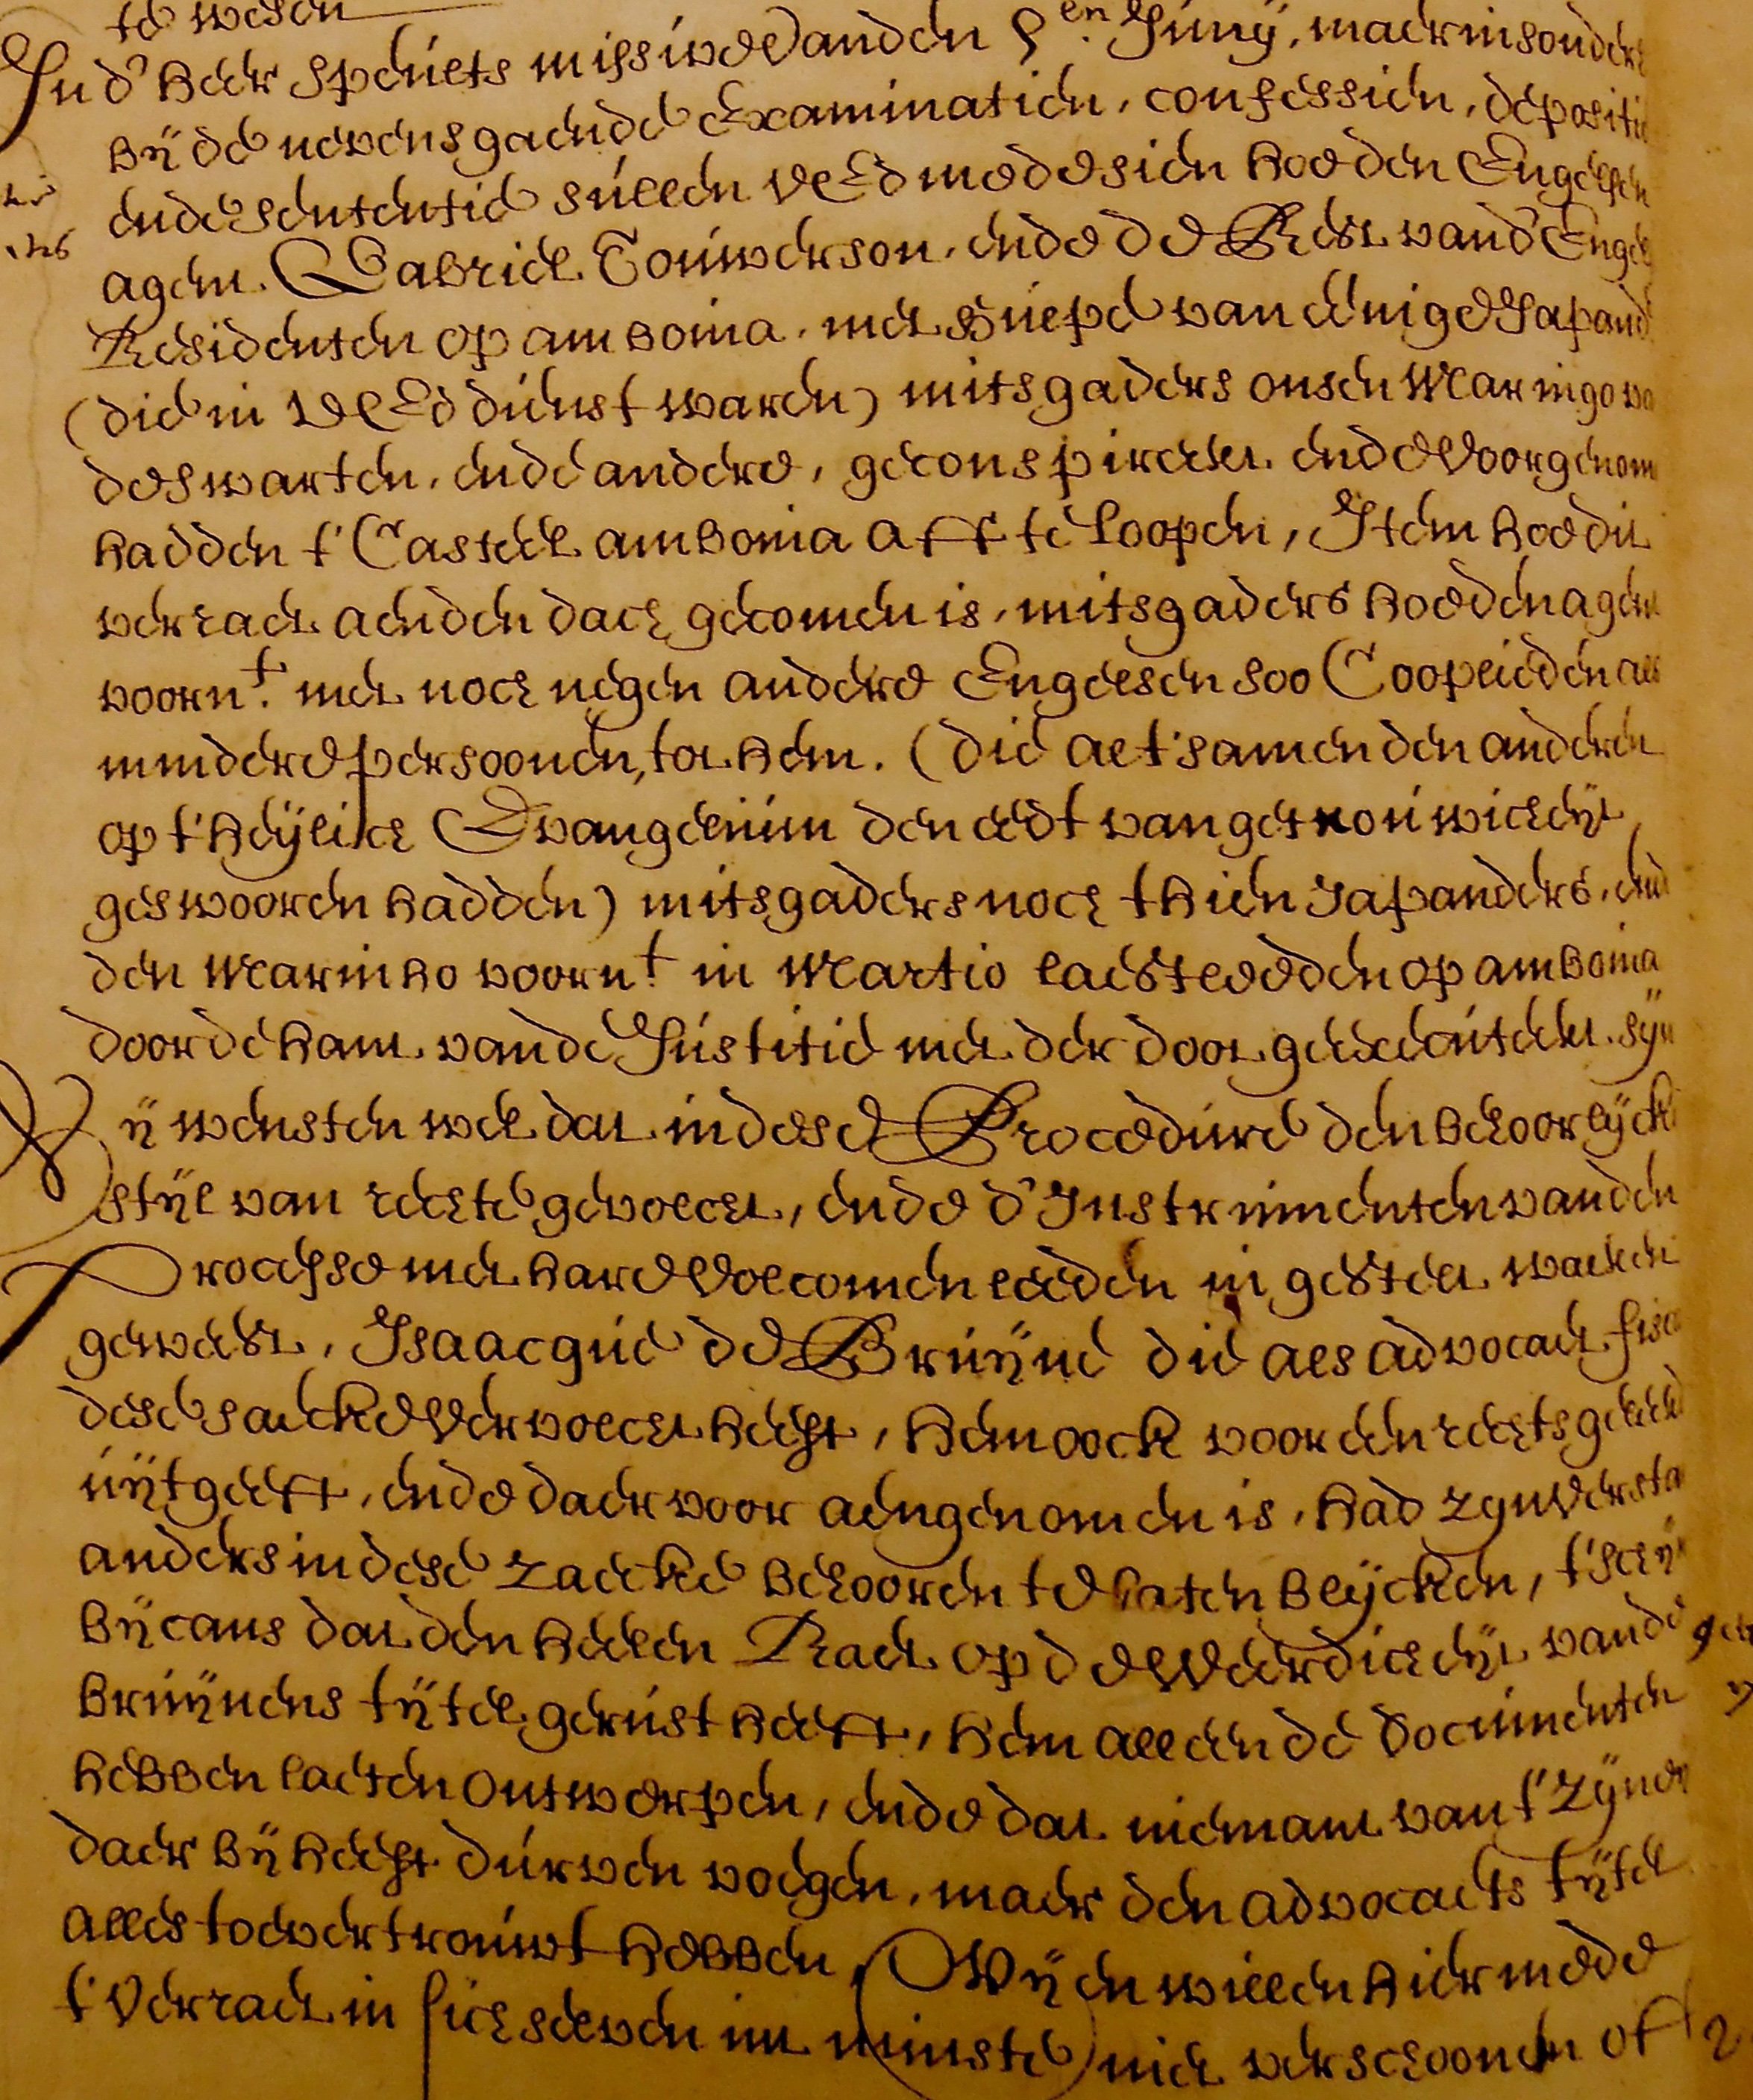 te wesen
In d'heer Speults missive vanden 5en. Junij, maer insonder
bÿ de nevensgaende Examinatien, confessien, depositi
ende sententie sullen UE Ed mede sien hoe den Engelsen
agent. Gabriel Touwerson, ende de Rest vand' Engel
Residenten op amboina, met hulpe van eenige Japand
(die in UE Ed dienst waren) mitsgaders onsen Maringo va
de swarten, ende andere, geconspireert ende voorgenom
hadden t' Casteel amboina aff te loopen, Item hoe dit
verraet aenden dach gecomen is, mitsgaders hoe den agent
voornt. met noch negen andere Engelsen soo Coopluÿden als
mindere persoonen, tot hem. (die al t'samen den anderen
op t' heÿlich Evangelium den eedt van getrouwicheÿt
geswooren hadden) mitsgaders noch thien Japanders, end
den Marinho voornt. in Martio laestleeden op amboina
door de hant vande Justitie met der doot geexecuteert. sÿn
Wÿ wensten wel dat in dese Procedure den behoorlÿck
stÿl van rechte gevolcht, ende d' Instrumenten vanden
Processe met hare volcomen leeden in gestelt waeren
geweest, Isaacque de Bruÿne die als advocaet fisca
dese saecke vervolcht heeft, hem oock voor een rechtsgeleerd
uÿtgeeft, ende daer voor aengenomen is, had zÿn versta
anders in dese zaecke behooren te laten blÿcken, t'schÿn
bÿcans dat den heelen Raet op de Weerdicheÿt vande
Bruÿnens tÿtel gerust heeft, hem alleen de documenten
hebben laeten ontwerpen, ende dat niemant van t' zÿne
daer bÿ heeft durven voegen, maer den advocaets tÿtel
alles toevertrouwt hebben, Wÿ en willen hier mede
t' Verraet in sich selven int minste niet verschoonen of